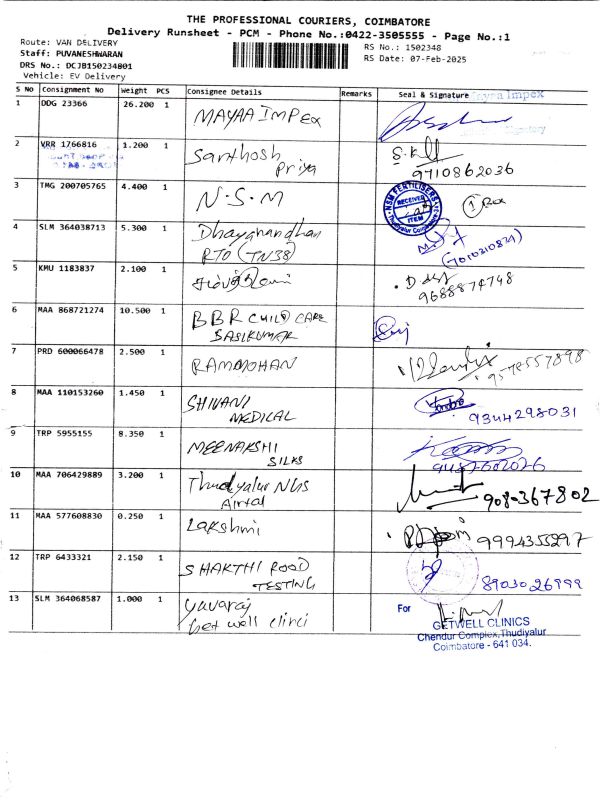 THE PROFESSIONAL COURIERS, COIMBATORE
Delivery Runsheet - PCM - Phone No.:0422-3505555 - Page No.:1
Route: VAN DELIVERY
Staff: PUVANESHWARAN
DRS No.: DCJB150234801
Vehicle: EV Delivery
RS No.: 1502348
RS Date: 07-Feb-2025
S NO Consignment No Weight PCS Consignee Details Remarks Seal & Signature
1 DDG 23366 26.200 1 MAYAA IMPEX Mayaa Impex
2 VRR 1766816 1.200 1 Santhosh
Priya
9710862036
3 TMG 200705765 4.400 1 N.S.M NSM FERTILISERS RECEIVED ITEM Thudiyalur Coimbatore 1 Box
4 SLM 364038713 5.300 1 Dhayanandhan
RTO (TN38)
5 KMU 1183837 2.100 1
9688874748
6 MAA 868721274 10.500 1 BBR CHILD CARE
SASIKUMAR
7 PRD 600066478 2.500 1 RAMMOHAN 9578557898
8 MAA 110153260 1.450 1 SHIVANI
MEDICAL
9344298031
9 TRP 5955155 8.350 1 MEENAKSHI
SILKS
10 MAA 706429889 3.200 1 Thudiyalur NHS
Airtel
9080367802
11 MAA 577608830 0.250 1 Lakshmi 9994355297
12 TRP 6433321 2.150 1 SHAKTHI ROAD
TESTING
8903026999
13 SLM 364068587 1.000 1 Yuvaraj
Get well clinci
For
GETWELL CLINICS
Chendur Complex,Thudiyalur
Coimbatore - 641 034.